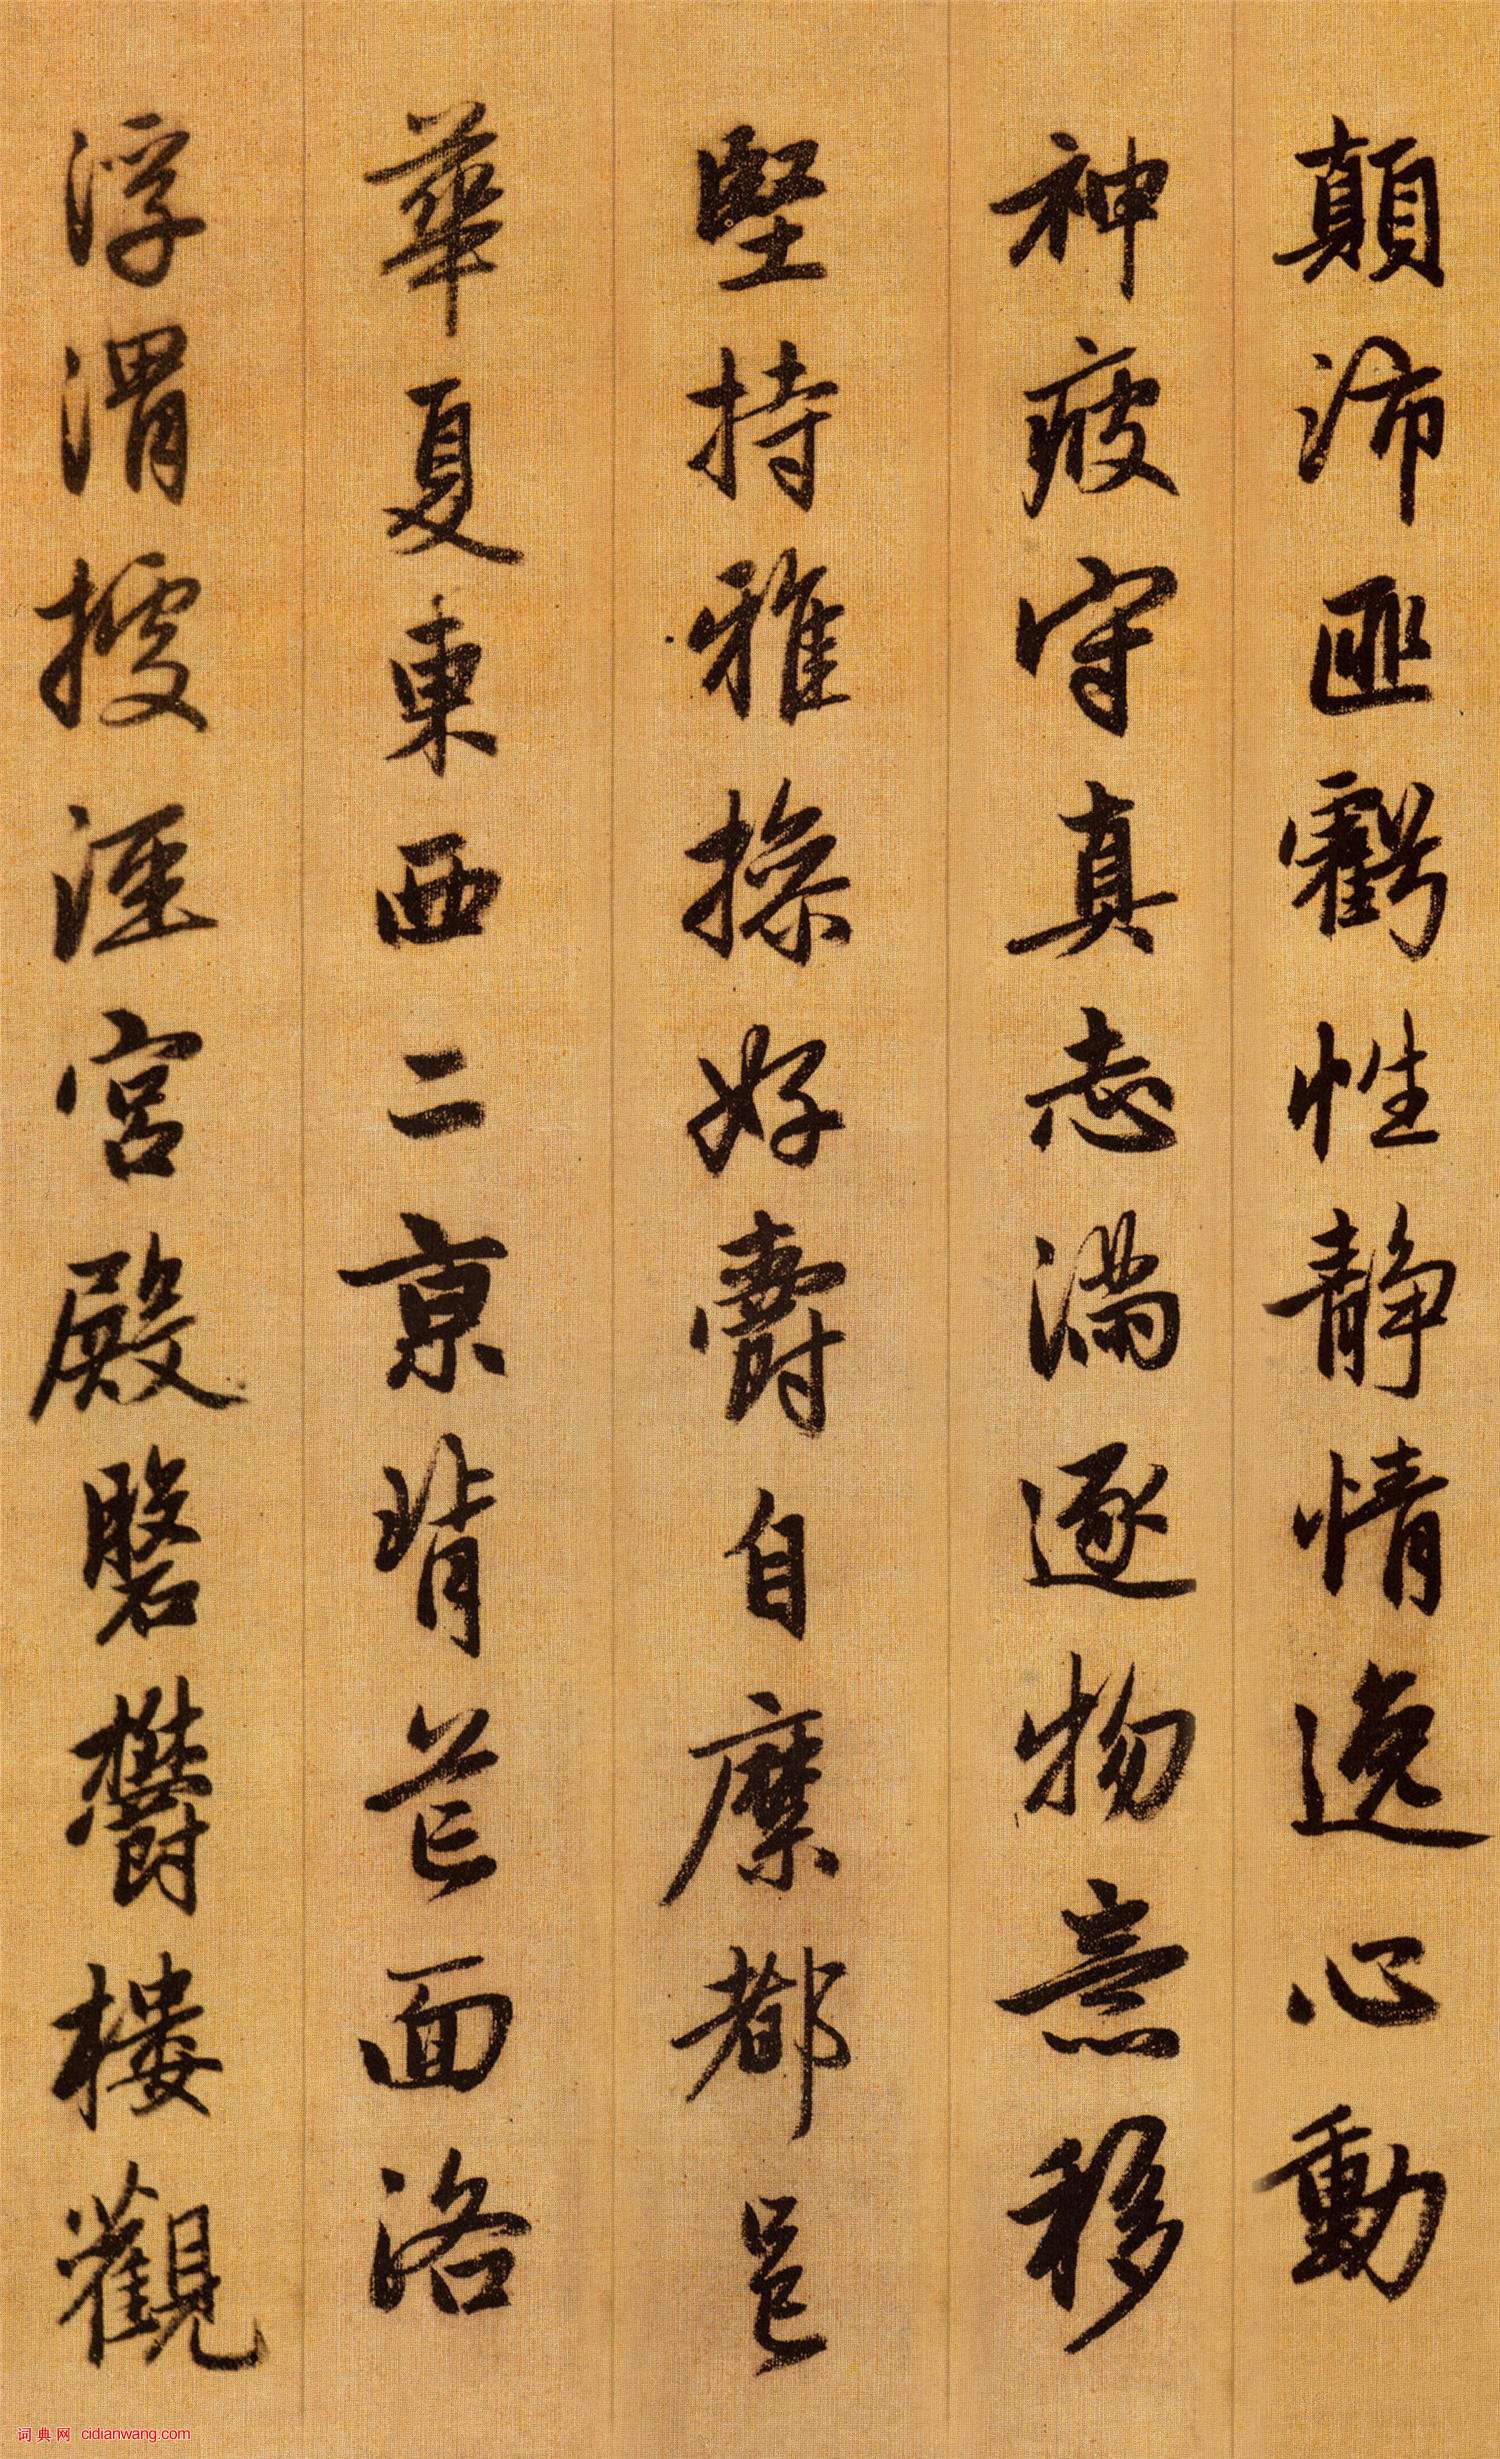 顛沛匪虧性靜情逸心動
神疲守真志滿逐物意移
堅持雅操好爵自縻都邑
華夏東西二京背芒面洛
浮渭據涇宮殿磐鬱樓觀
词典网 cidianwang.com